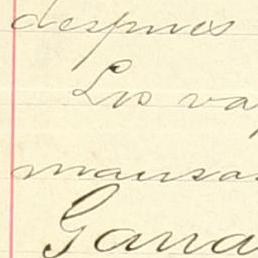 despues
Los va
mansas
Gana